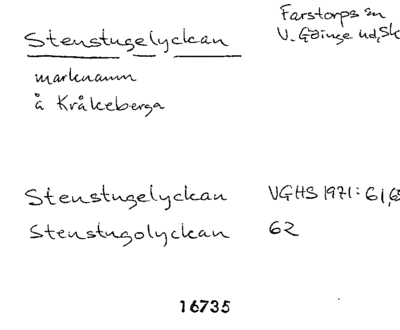 Farstorps sn
Stenstugelyckan V. Göinge hd, Sk
marknamn
å Kråkeberga
Stenstugelyckan VGHS 1971: 61,6
Stenstugolyckan 62
16735